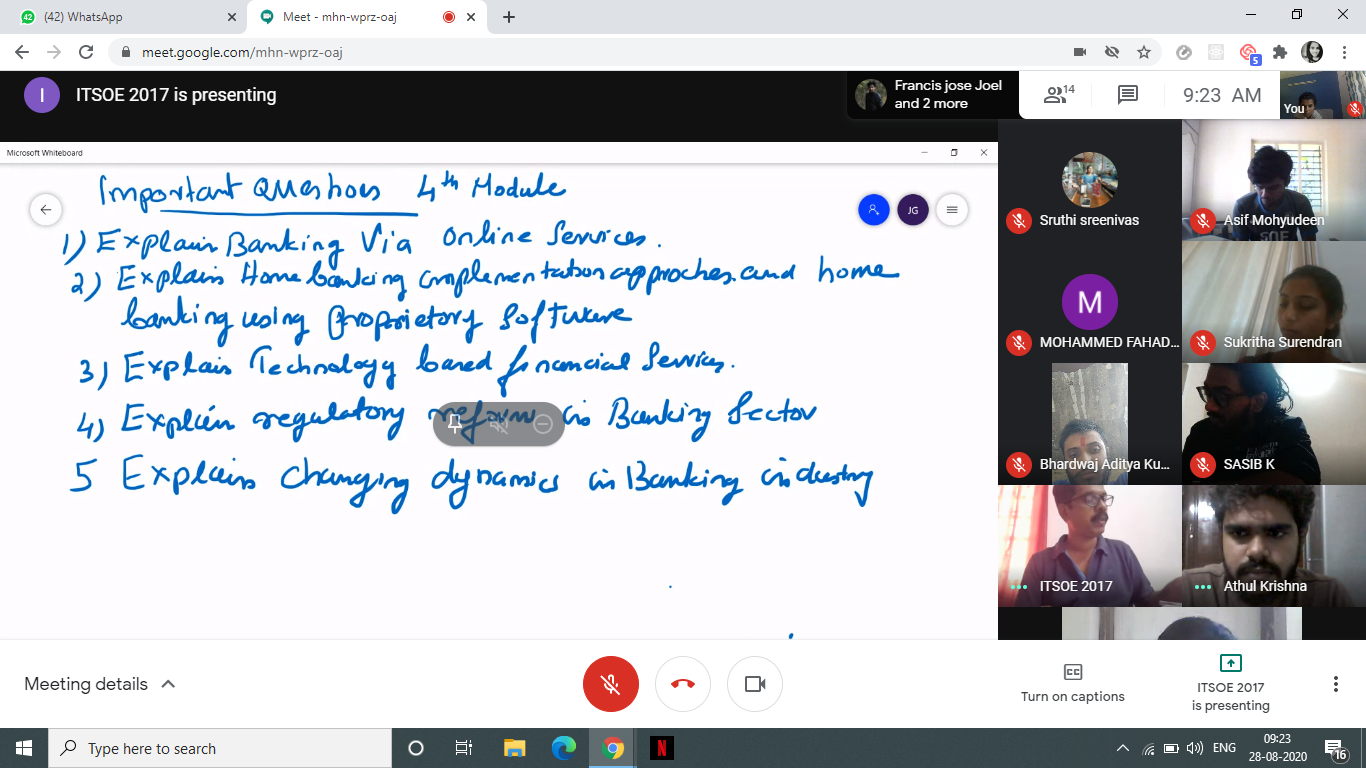 (42) WhatsApp
Meet - mhn-wprz-oaj
meet.google.com/mhn-wprz-oaj
5
I
ITSOE 2017 is presenting
Francis jose Joel
and 2 more
14
9:23 AM
You
Microsoft Whiteboard
Important Questions 4th Module
JG
1) Explain Banking Via Online Services.
2) Explain Home banking implementation approches. and home
banking using proprietory Software
3) Explain Technology based financial Services.
4) Explain regulatory reforms in Banking Sector
5 Explain changing dynamics in Banking industry
Sruthi sreenivas
Asif Mohyudeen
M
MOHAMMED FAHAD...
Sukritha Surendran
Bhardwaj Aditya Ku...
SASIB K
ITSOE 2017
Athul Krishna
Meeting details
Turn on captions
ITSOE 2017
is presenting
Type here to search
N
ENG
09:23
28-08-2020
16